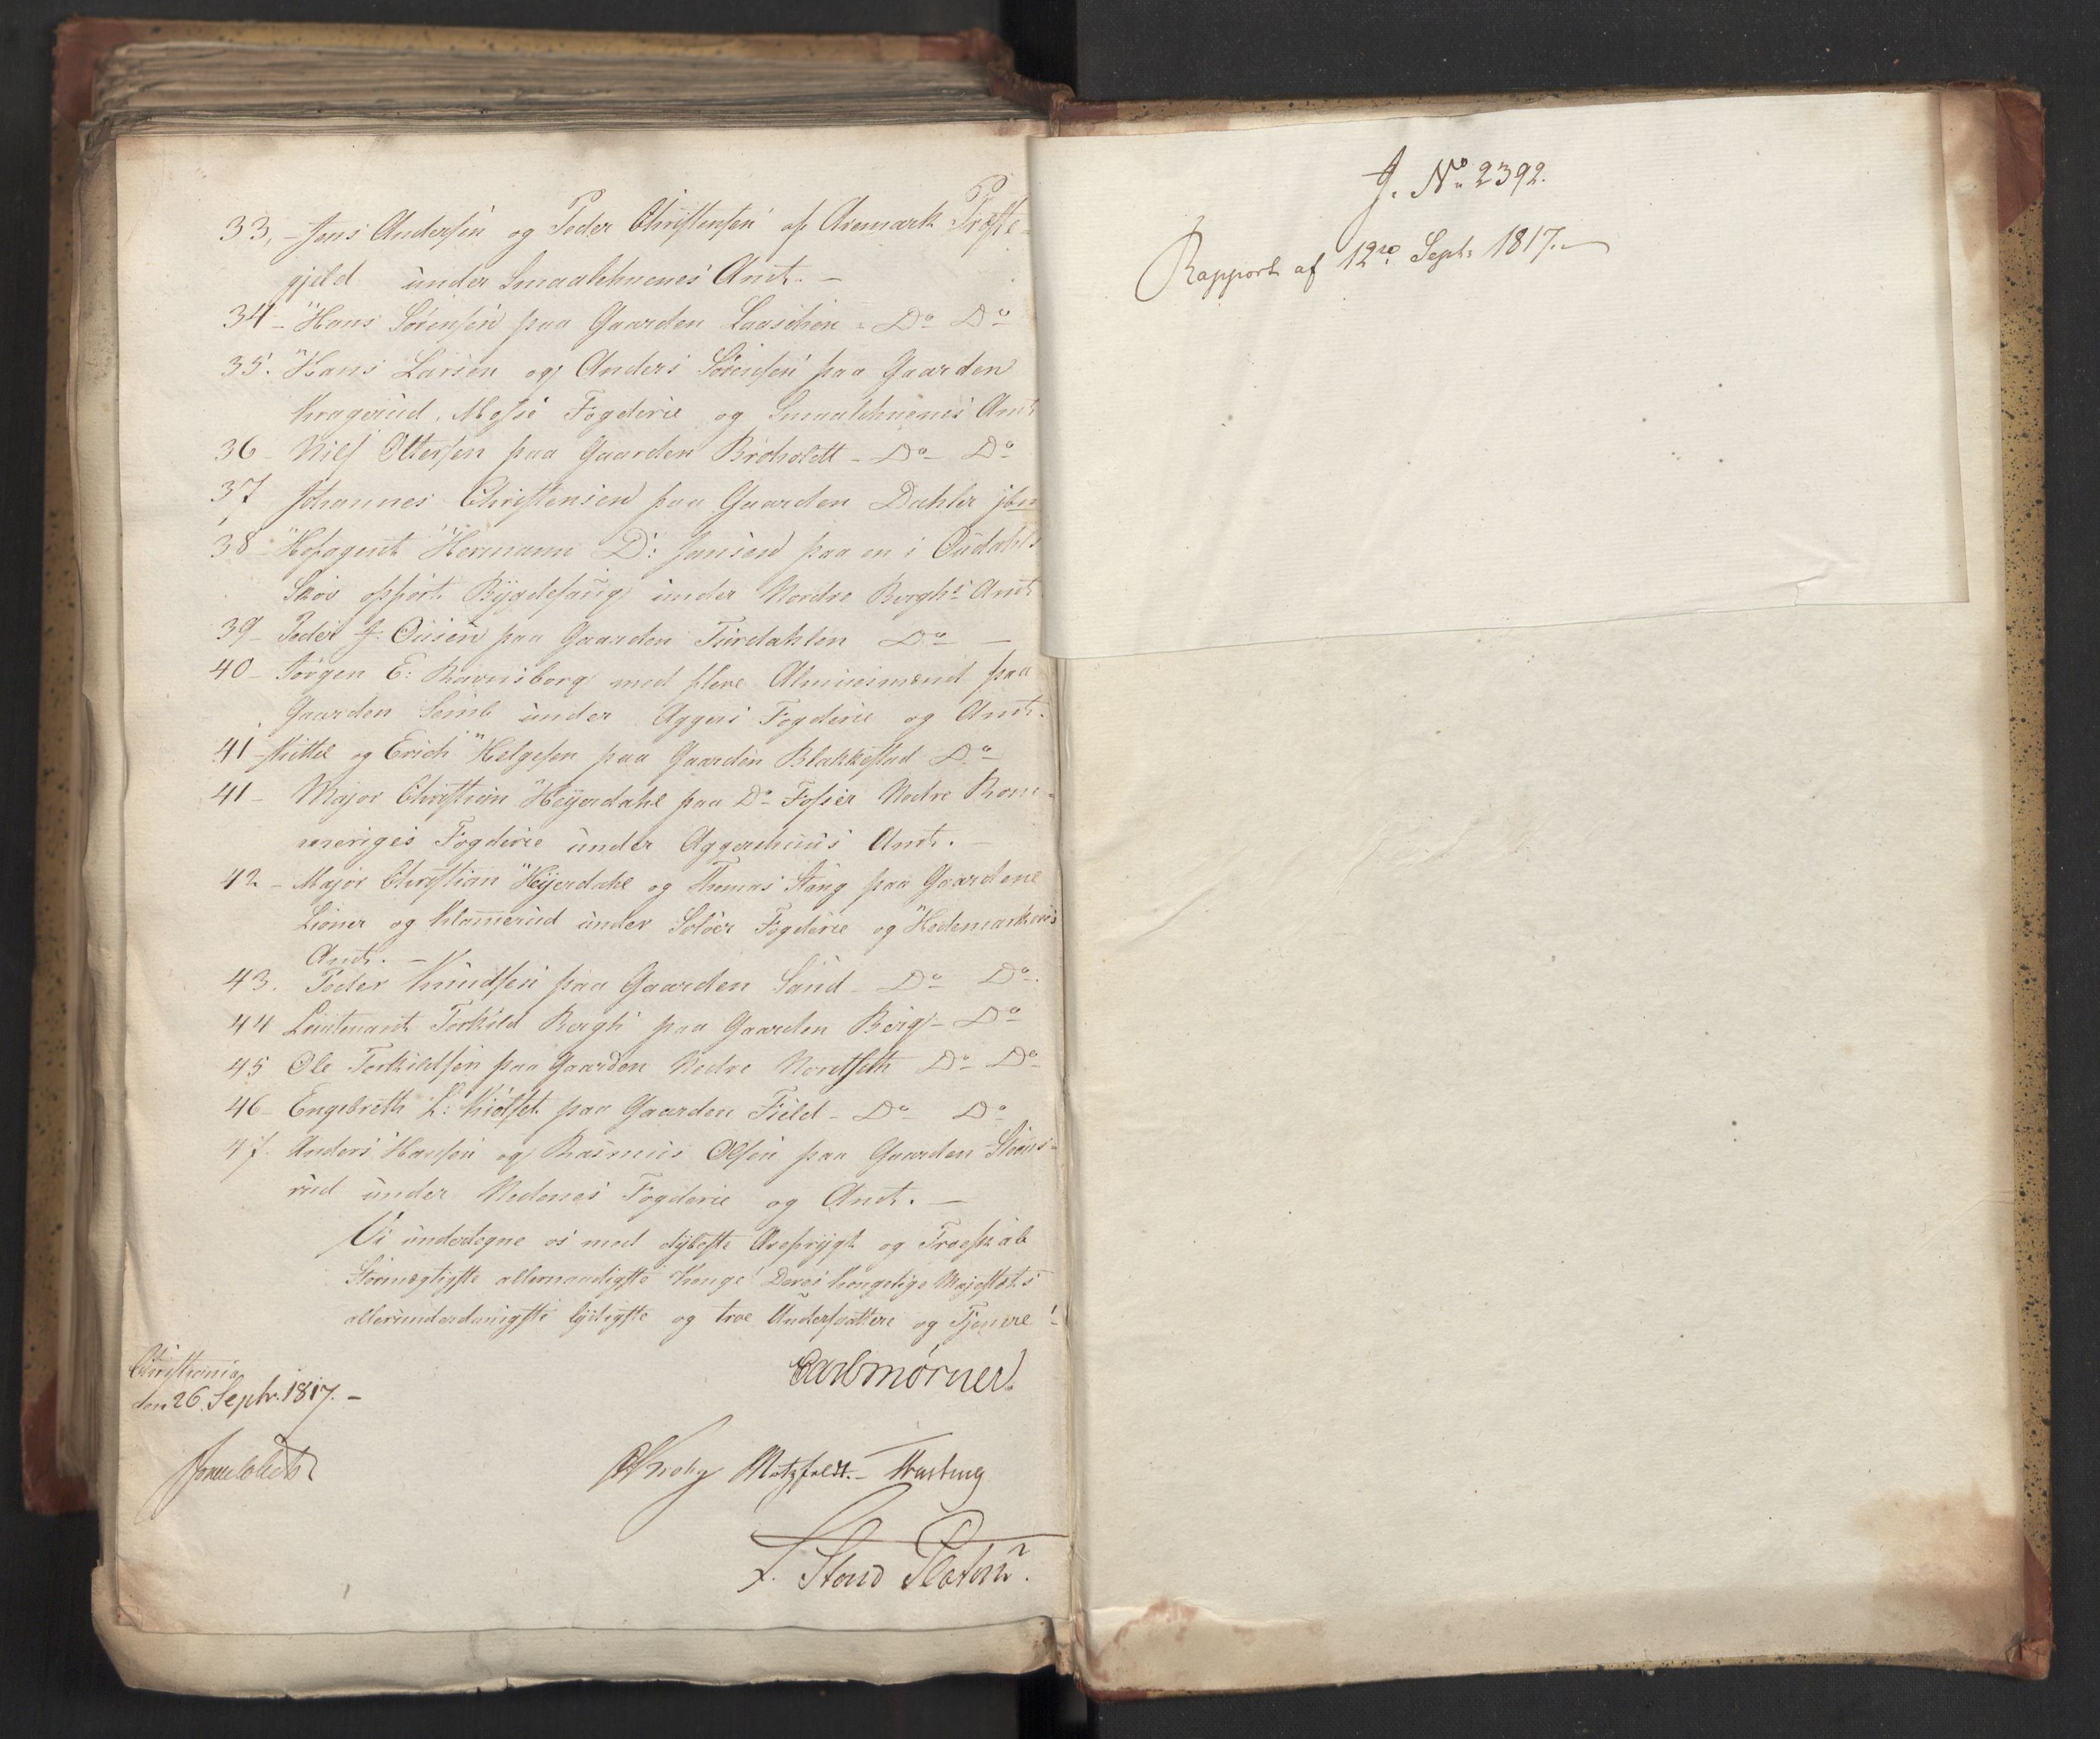 33, - Jens Andersen og Peder Christensen af Aremark Præste-
gjeld under Smaalehnenes Amt. -
34 - Hans Sørensen paa Gaarden Laaschen - Do Do
35. Hans Larsen og Anders Sørensen paa Gaarden
Kragerud, Mosse Fogderie og Smaalehnenes Amt
36 - Niels Ottersen paa Gaarden Broholdt - Do - Do
37 Johannes Christensen paa Gaarden Dahler
38 - Hofagent Hermann D: Jansen paa en i
Skov opført Bygdesaug under Nordre Berghs Amt
39 - Peder J: paa Gaarden Do -
40 - Jørgen E: Ravnsborg med flere Almuesmænd paa
Gaarden Semb under Aggers Fogderie og Amt.
41 - Kittel og Erich Helgesen paa Gaarden Blakkestad Do
41 - Major Christian Heyerdahl paa Do Fosser Nedre Rom-
meriges Fogderie under Aggershuus Amt. -
42 - Major Christian Heyerdahl og Thomas Stang paa Gaardene
Lioner og under Soløer Fogderie og Hedemarkens
Amt. -
43. Peder Knudsen paa Gaarden Sand - Do Do.
44 Lieutenant Torkild Bergh paa Gaarden Berg - Do
45 Ole Torkildsen paa Gaarden Nedre Nordseth Do - Do
46 - Engebreth L: Kiølset paa Gaarden Field - Do - Do
47. Anders Hansen og Rasmus Olsen paa Gaarden
rud under Nedenes Fogderie og Amt. -
Vi undertegne os med dybeste Ærefrygt og Troeskab
Stormægtigste allernaadigste Konge! Deres Kongelige Majestæts
allerunderdanigste lydigste og troe Undersaattere og Tjenere!
Carl Mörner.
Christiania
den 26. Septr. 1817. -
Krohg Motzfeldt. - Hasting
f. Stand Platou.
J. No. 2392.
Rapport af 12te Septr 1817. -